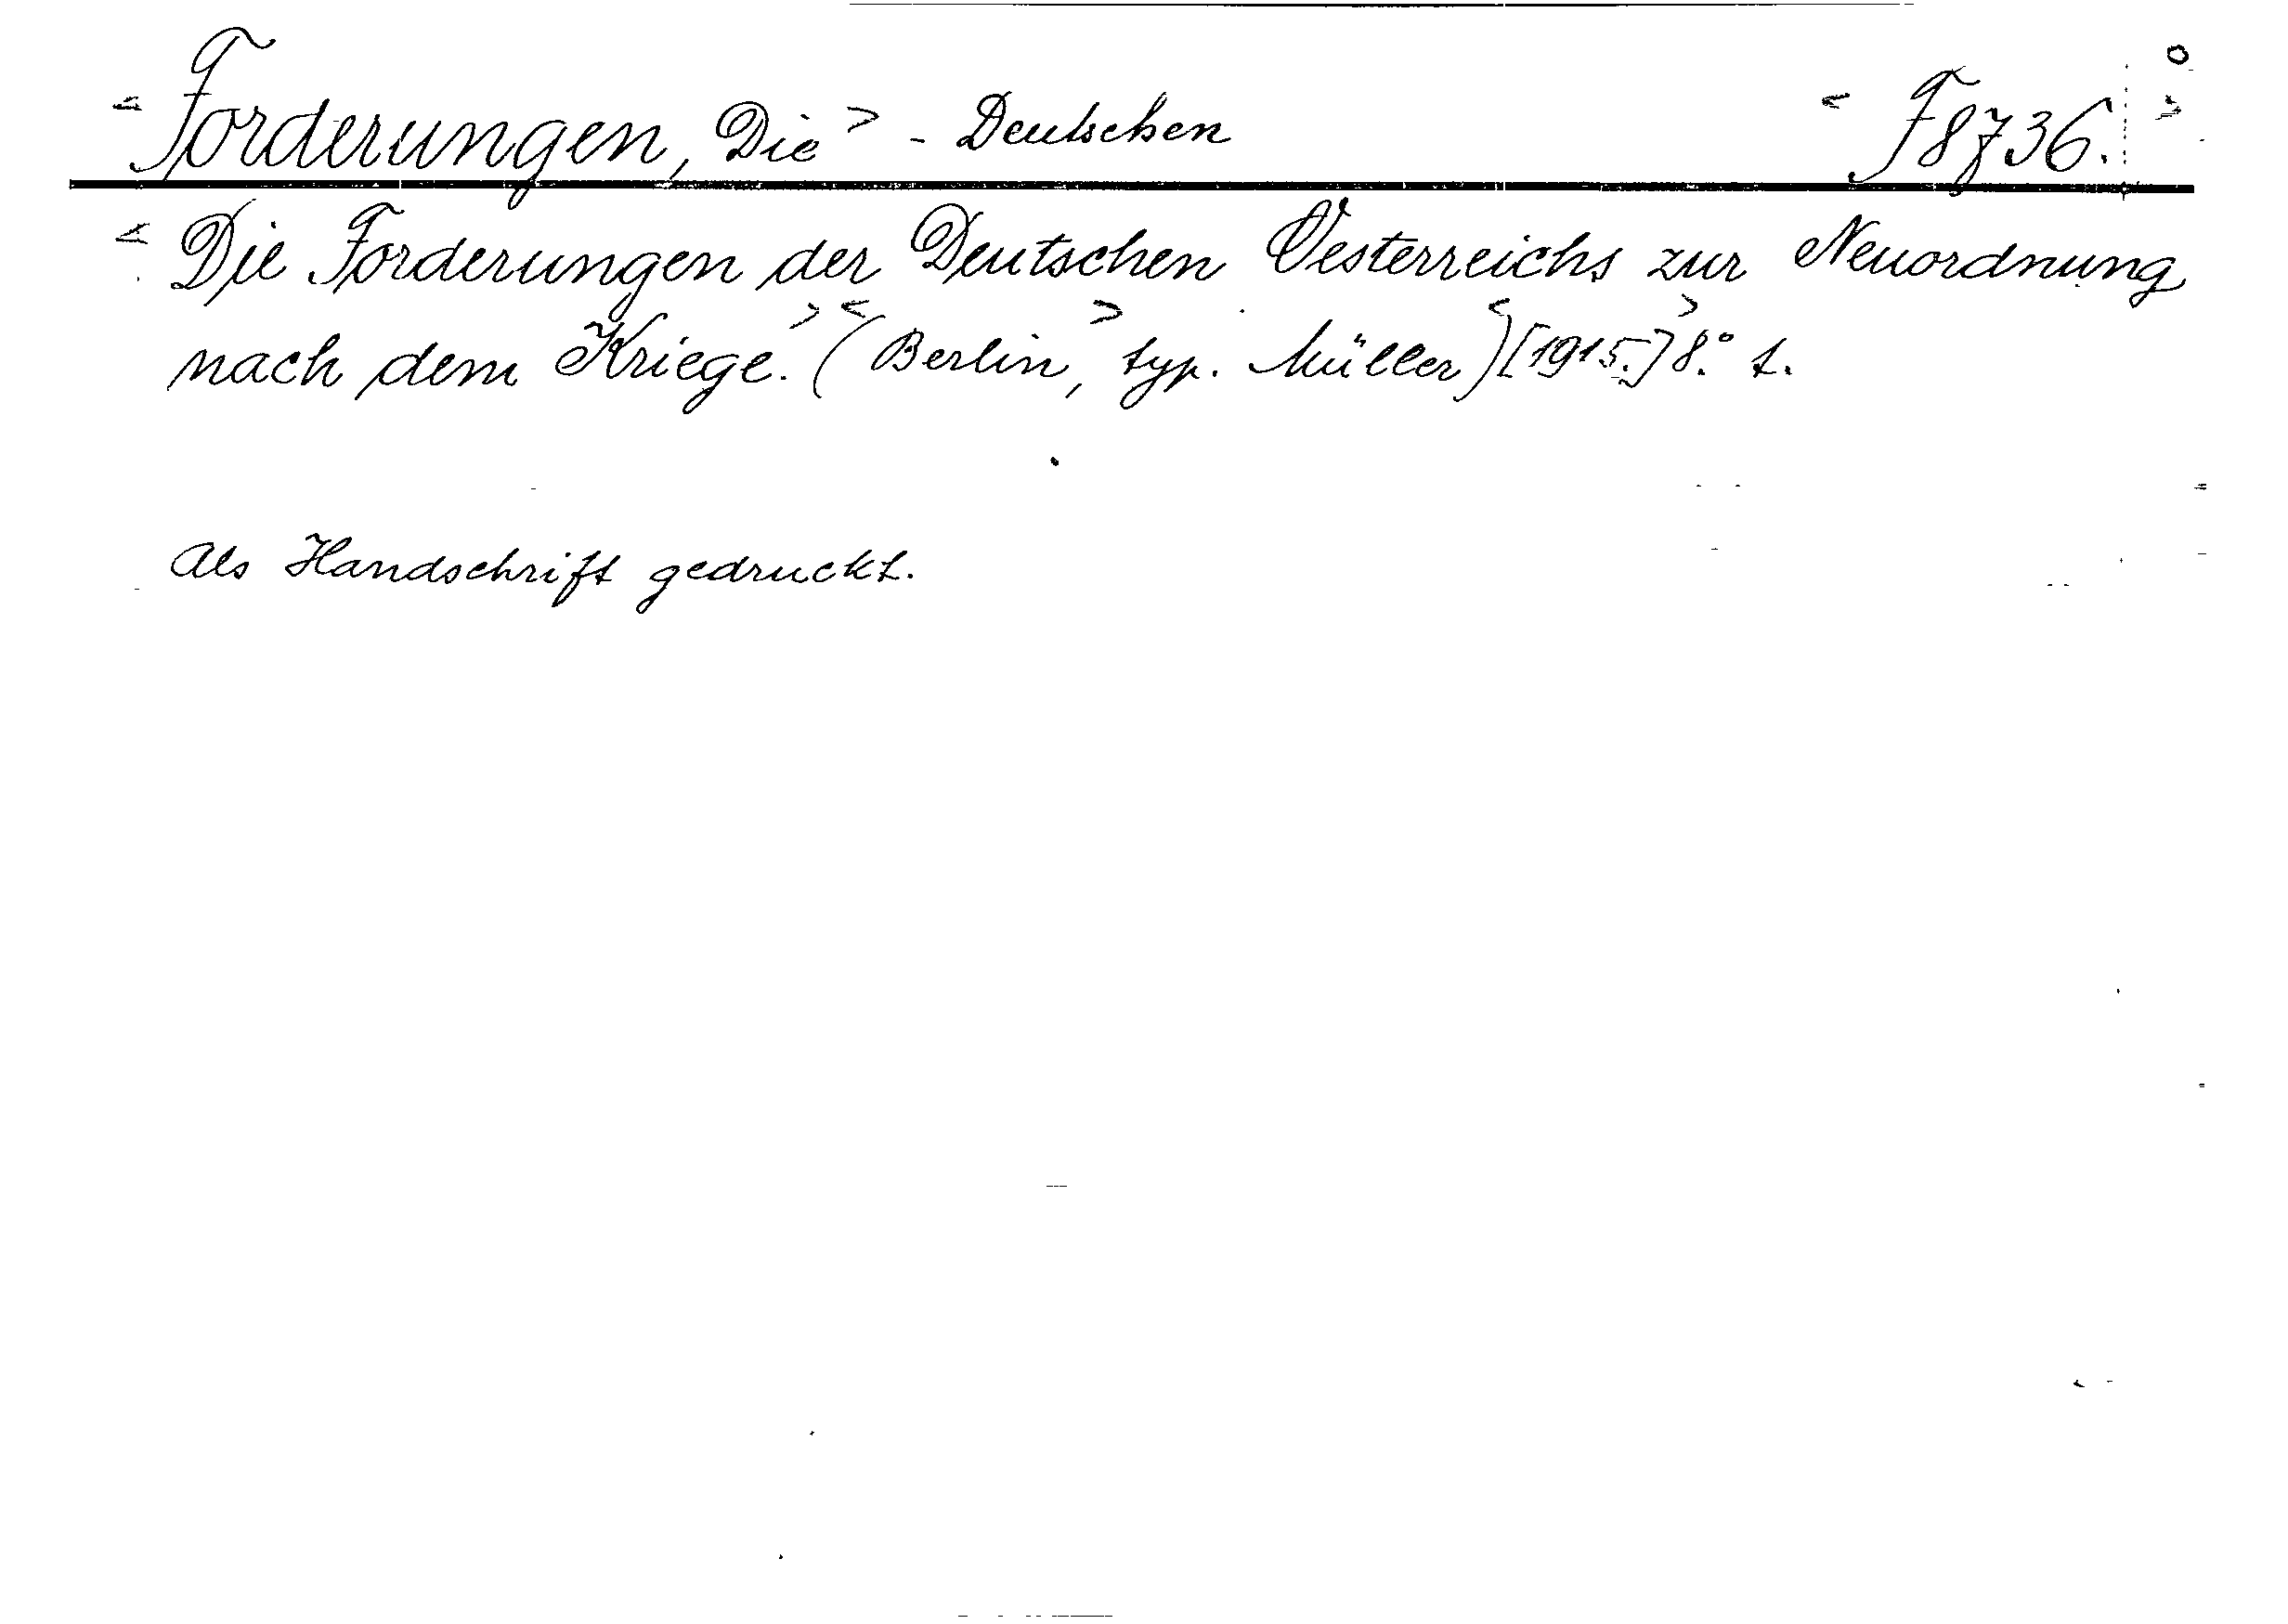 <Forderungen, Die> - Deutschen <F 8736.>
<Die Forderungen der Deutschen Oesterreichs zur Neuordnung
nach dem Kriege.> <(Berlin,> typ. Müller) <[1915.]> 8.° t.
Als Handschrift gedruckt.